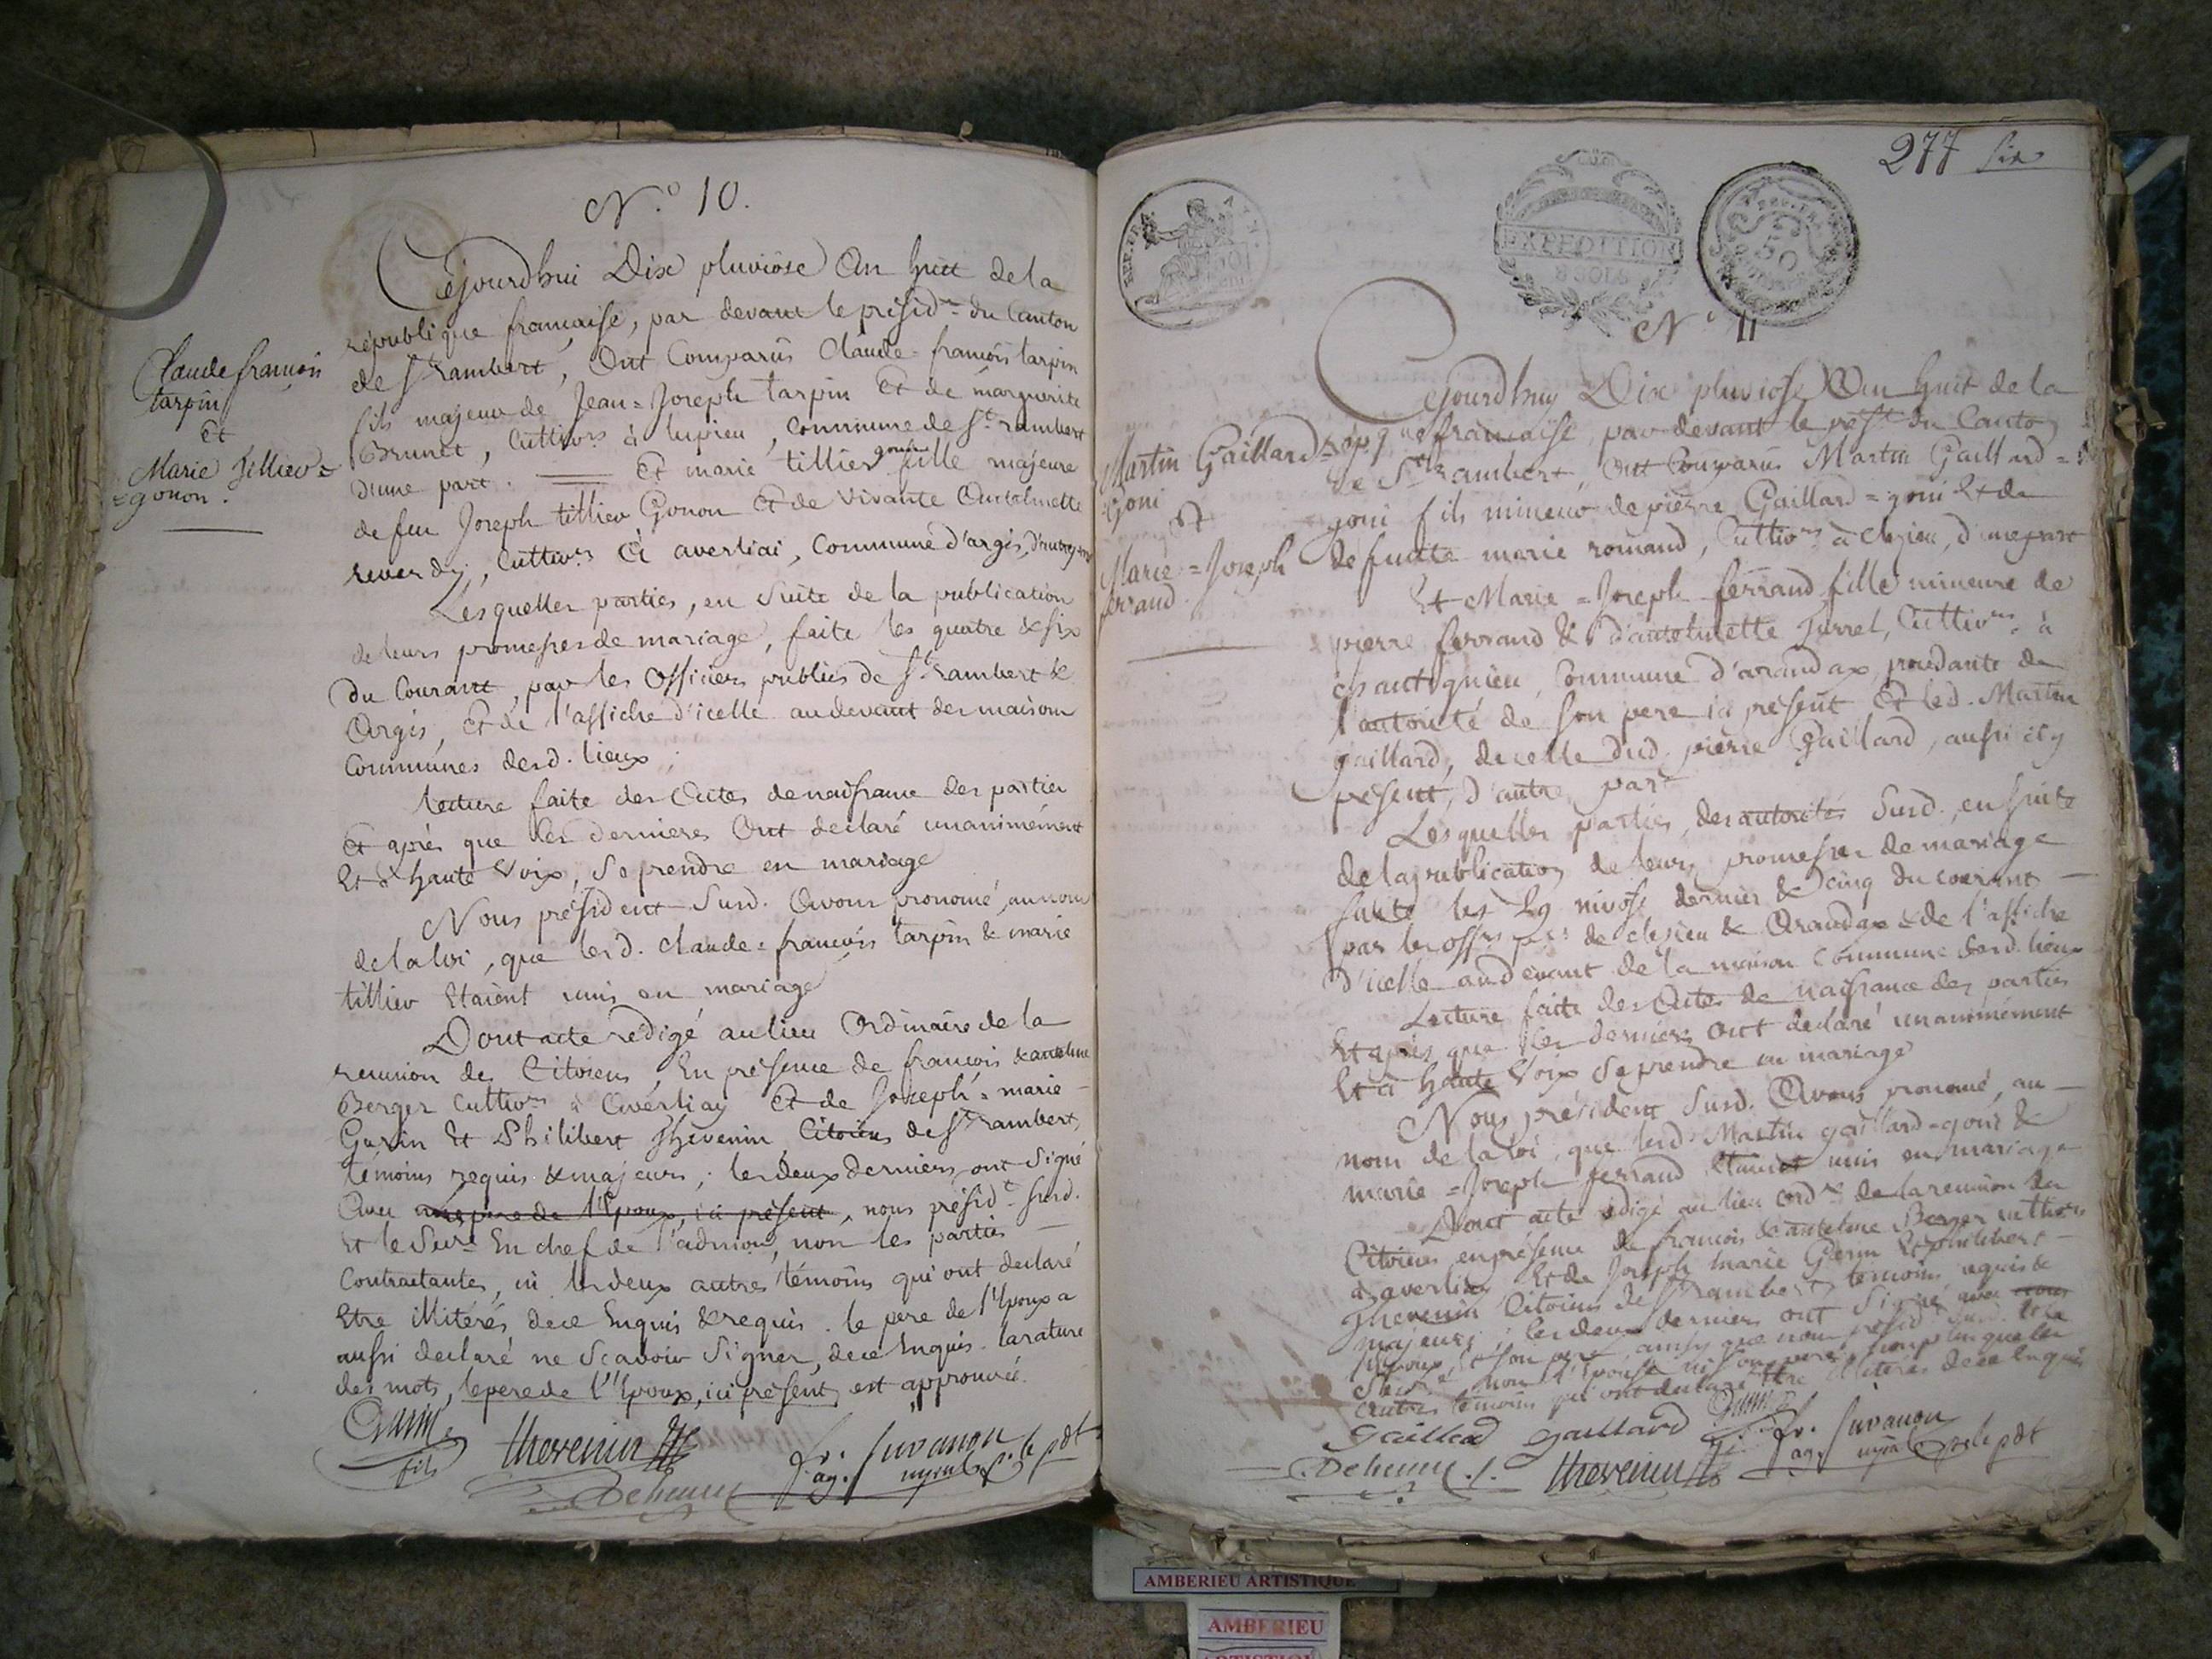 N.º 10.
Cejourdhui Dix pluviôse an huit de la
république francaise, par devant le présid.t du Canton
de St rambert, Ont Comparus Claude=francois tarpin
fils majeur de Jean=Joseph tarpin Et de marguerite
Brunet, Cultivrs à lupieu, Commune de St rambert
d'une part. — Et marie tillier gonon fille majeure
de feu Joseph tillier Gonon Et de Vivante Antelmette
reverdy, Cultivrs à averliai, Commune d'argis, d'autre part
Claude francois
tarpin
Et
Marie tillier=
=gonon.
Lesquelles parties, en suite de la publication
de leurs promesses de mariage, faite les quatre & six
du Courant, par les Officiers publics de St rambert &
Argis, Et de l'affiche d'icelle audevant des maisons
Communes desd. lieux;
lecture faite des Actes de naissance des parties
Et après que les dernieres Ont declaré unanimément
Et à haute Voix, Se prendre en mariage
Nous président Susd. Avons pronomé, au nom
de la loi, que lesd. Claude=francois tarpin & marie
tillier Etaient unis en mariage
Dont acte rédigé au lieu Ordinaire de la
reunion des Citoiens, En présence de francois & antelme
Berger Cultivrs à Averliay Et de Joseph=marie
Garin Et Philibert thevenin Citoiens de St rambert,
témoins requis & majeurs; les deux derniers ont Signé
Avec le pere de l'Epoux, ici présent, nous présid.t susd.
Et le Secre En chef de l'admon, non les parties
Contractantes, ni les deux autres témoins qui ont declaré
Etre illitérés de ce Enquis & requis. le pere de l'Epoux a
aussi declaré ne Scavoir Signer, de ce Enquis. la rature
des mots, le pere de l'Epoux, ici présent, est approuvée.
Garin
fils
thevenin
fr. Juvanon
ag. mpal p. le pdt
277 six
REP. FRA.
EXPEDITION
50
N.º 11
Cejourdhuy Dix pluviôse An huit de la
rép.que francaise, par devant le pést du Canton
de St rambert, Ont Comparus Martin Gaillard=
goni fils mineur de pierre Gaillard=goni Et de
defunte marie romand, Cultivrs à Clezieu, d'une part
Martin Gaillard=
goni
Et
Marie=Joseph
ferrand
Et Marie=Joseph ferrand fille mineure de
pierre ferrand & d'antelmette Jurrel, Cultivrs à
chantignieu, Commune d'arandax, procedante de
l'autorité de son pere ici présent Et led. Martin
gaillard, de celle dud. pierre Gaillard, aussi icy
présent, d'autre part
Lesquelles parties, des autorités Susd., en suite
de la publication de leurs promesses de mariage
faite les 29 nivôse dernier & cinq du courant
par les offrs pcs de clezieu & Arandax & de l'affiche
d'icelle audevant de la maison Commune desd. lieux
Lecture faite des Actes de naissance des parties
Et après que les derniers Ont declaré unanimément
Et à haute Voix Se prendre en mariage
Nous président Susd. Avons pronomé, au
nom de la loi, que lesd. Martin gaillard=goni &
marie=Joseph ferrand Etaient unis en mariage
Dont acte rédigé au lieu ordre de la reunion des
Citoiens, en présence de francois & antelme Berger cultivrs
à averliay, Et de Joseph Marie Garin Et philibert
thevenin Citoiens de St rambert, temoins requis &
majeurs; les deux derniers ont Signé avec
l'Epoux, & son pere, ainsy que nous présidt susd. & le
Secre, non l'Epouse ni son pere, non plus que les
autres témoins qui ont declaré Etre illiterés de ce Enquis
Gaillard gaillard Garin
fr. Juvanon
ag. mpal p. le pdt
thevenin
AMBERIEU ARTISTIQUE
AMBERIEU
ARTISTIQUE